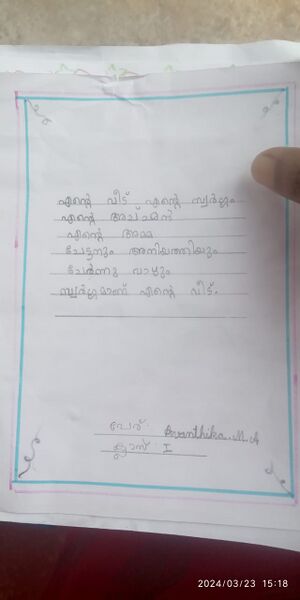 എന്റെ വീട് എന്റെ സ്വർഗ്ഗം
എന്റെ അച്ഛൻ
എന്റെ അമ്മ
ചേട്ടനും അനിയത്തിയും
ചേർന്നു വാഴും
സ്വർഗ്ഗമാണ് എന്റെ വീട്.
പേര്: Avanthika. M. A
ക്ലാസ്: I
2024/03/23 15:18